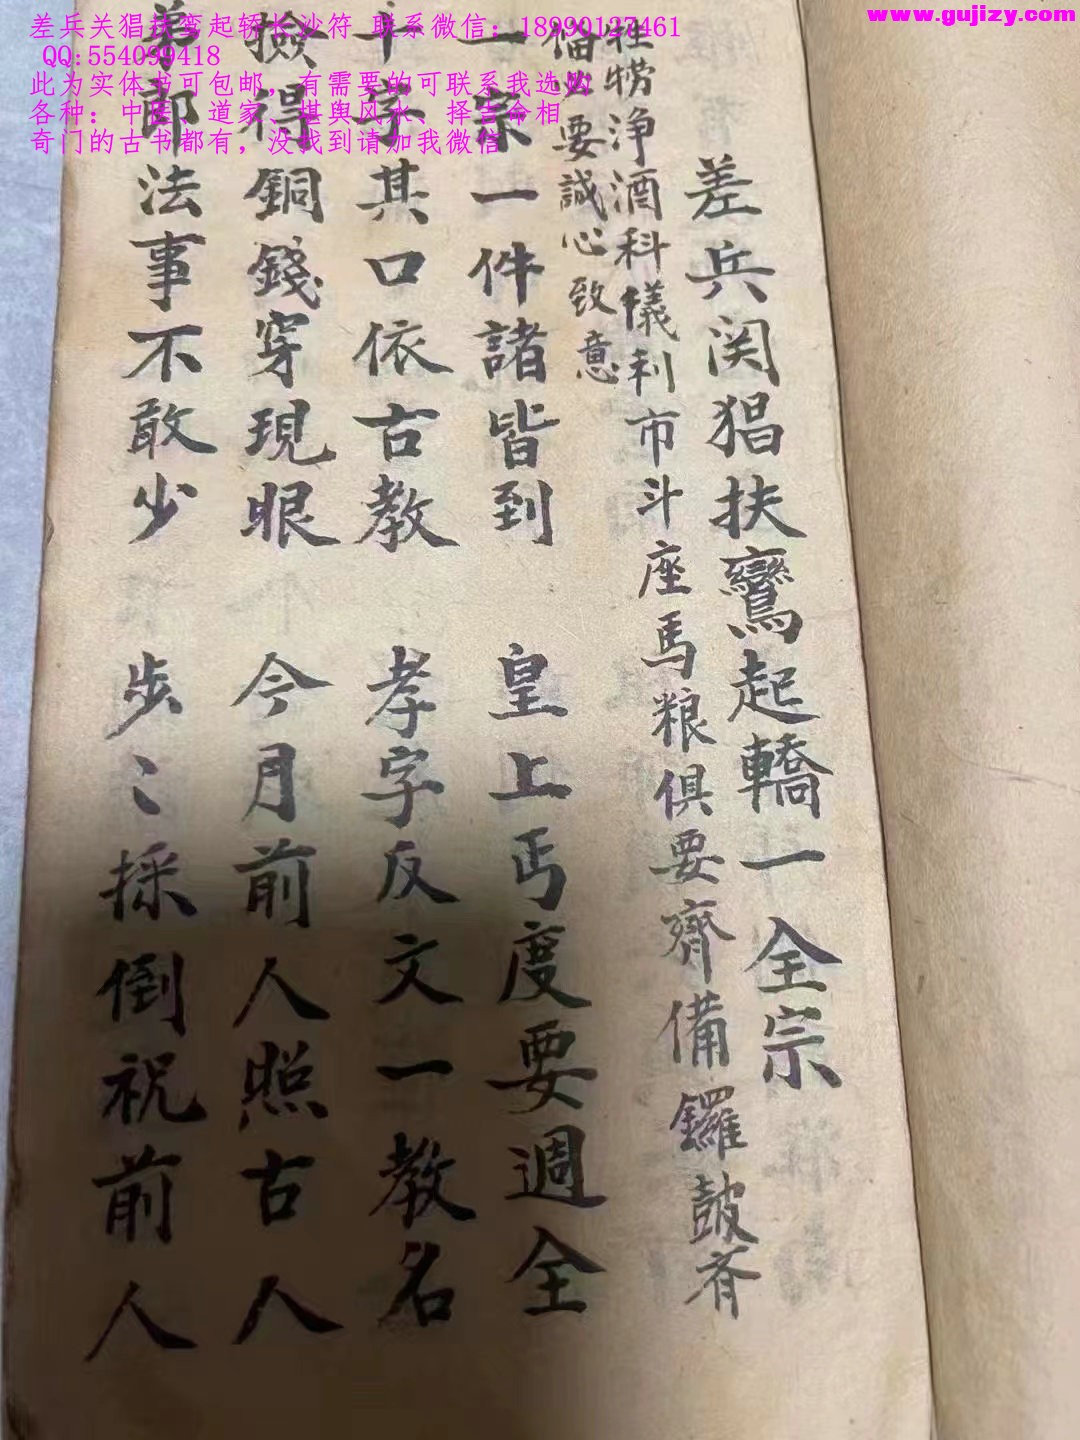 差兵关猖扶鸾起轿长沙符 联系微信：18990127461
QQ:554099418
此为实体书可包邮，有需要的可联系我选购
各种：中医、道家、堪舆风水、择吉命相
奇门的古书都有，没找到请加我微信
www.gujizy.com
差兵関猖扶鸞起轎一全宗
牲犒淨酒科儀利市斗座馬粮俱要齊備鑼鼓斉
備必要誠心致意
一宗一件諸皆到 皇上丐度要週全
十字其口依古教 孝字反文一教名
撿得銅錢穿現眼 今月前人照古人
弟郎法事不敢少 步〻採倒祝前人